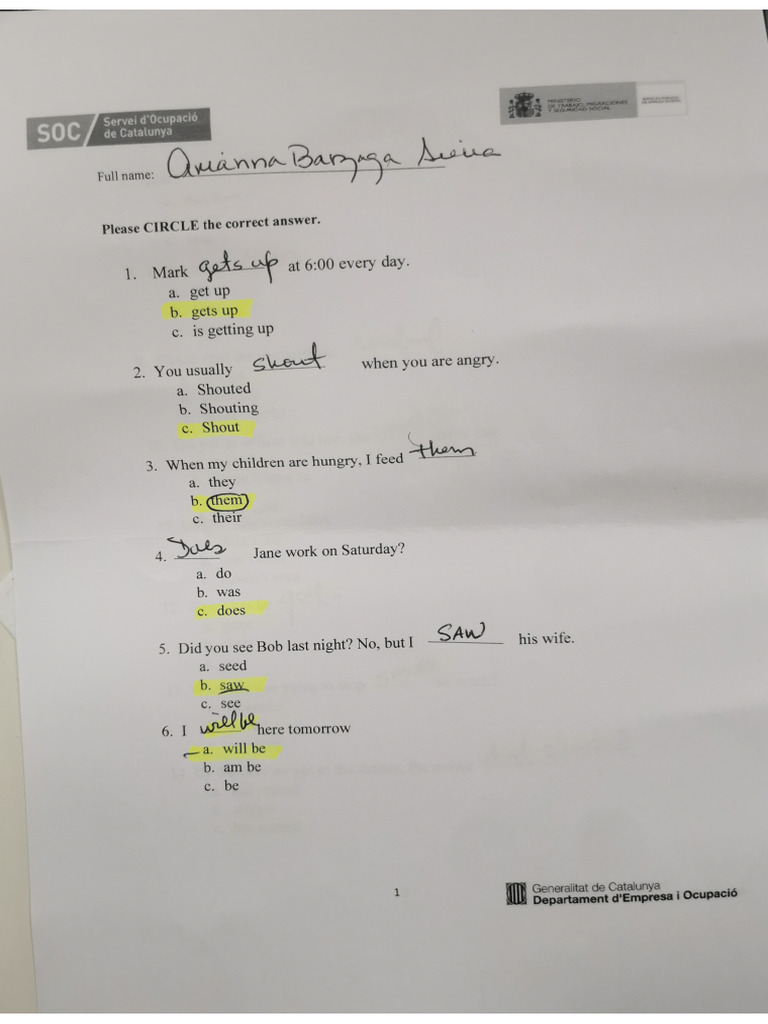 SOC Servei d'Ocupació
de Catalunya
MINISTERIO
DE TRABAJO, MIGRACIONES
Y SEGURIDAD SOCIAL
Full name: Arianna Barzaga
Please CIRCLE the correct answer.
1. Mark gets up at 6:00 every day.
a. get up
b. gets up
c. is getting up
2. You usually shout when you are angry.
a. Shouted
b. Shouting
c. Shout
3. When my children are hungry, I feed them
a. they
b. them
c. their
4. Does Jane work on Saturday?
a. do
b. was
c. does
5. Did you see Bob last night? No, but I SAW his wife.
a. seed
b. saw
c. see
6. I will be here tomorrow
a. will be
b. am be
c. be
1
Generalitat de Catalunya
Departament d'Empresa i Ocupació